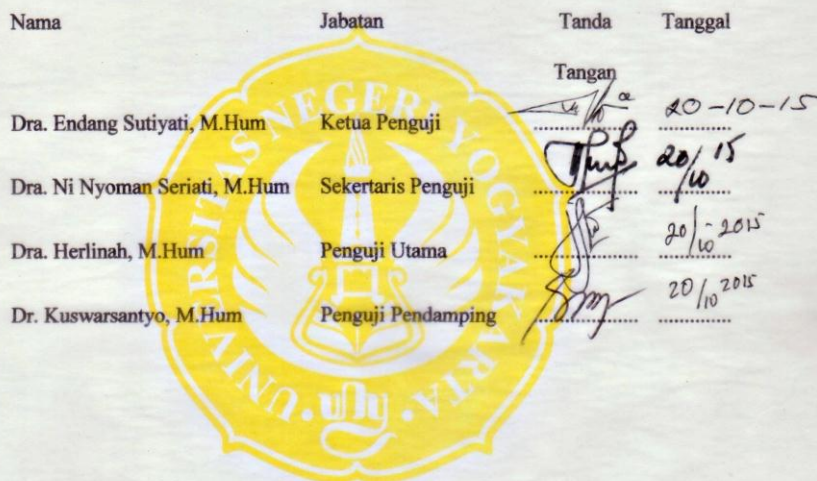 Nama Jabatan Tanda Tanggal
Tangan
Dra. Endang Sutiyati, M.Hum Ketua Penguji .................. 20-10-15
Dra. Ni Nyoman Seriati, M.Hum Sekertaris Penguji .................. 20/10 15
Dra. Herlinah, M.Hum Penguji Utama .................. 20/10-2015
Dr. Kuswarsantyo, M.Hum Penguji Pendamping .................. 20/10 2015
UNIVERSITAS NEGERI YOGYAKARTA